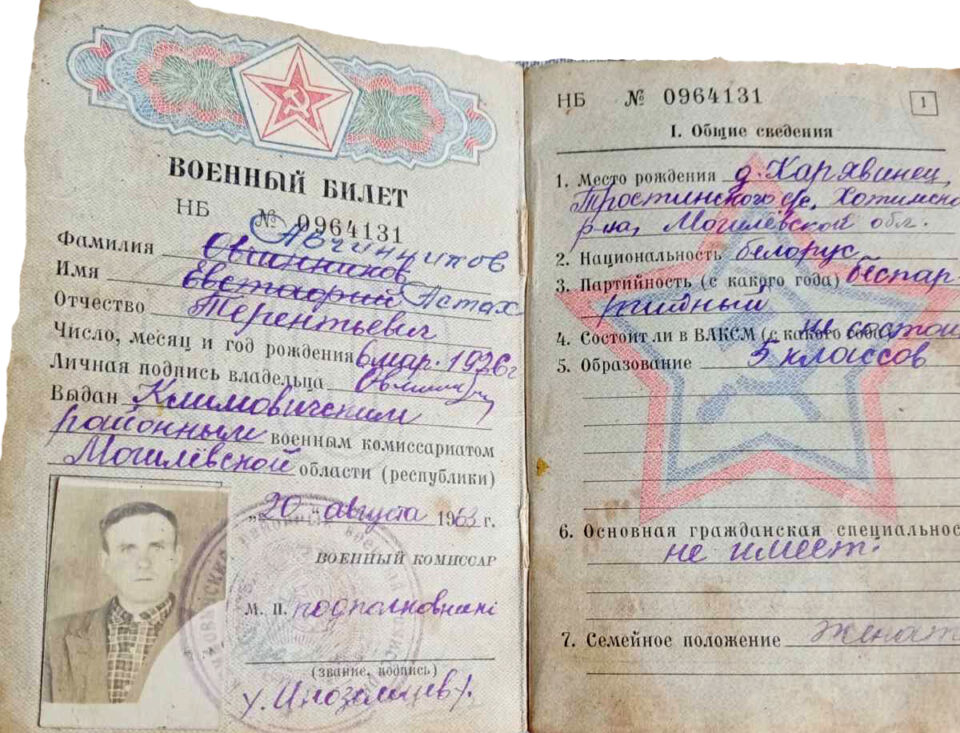 ВОЕННЫЙ БИЛЕТ
НБ № 0964131
Авчинников
Фамилия Овчинников
Имя Евстафий Астах
Отчество Терентьевич
Число, месяц и год рождения 6 мар. 1926г
Личная подпись владельца
Выдан Климовичским
районным военным комиссариатом
Могилёвской области (республики)
"20" августа 1963 г.
ВОЕННЫЙ КОМИССАР
М. П. подполковник
(звание, подпись)
НБ № 0964131 1
I. Общие сведения
1. Место рождения д. Харявинец,
Тростинского с/с, Хотимско
р-на, Могилёвской обл.
2. Национальность белорус
3. Партийность (с какого года) беспар-
тийный
4. Состоит ли в ВЛКСМ (с какого года) не состои
5. Образование 5 классов
6. Основная гражданская специальнос
не имеет.
7. Семейное положение женат